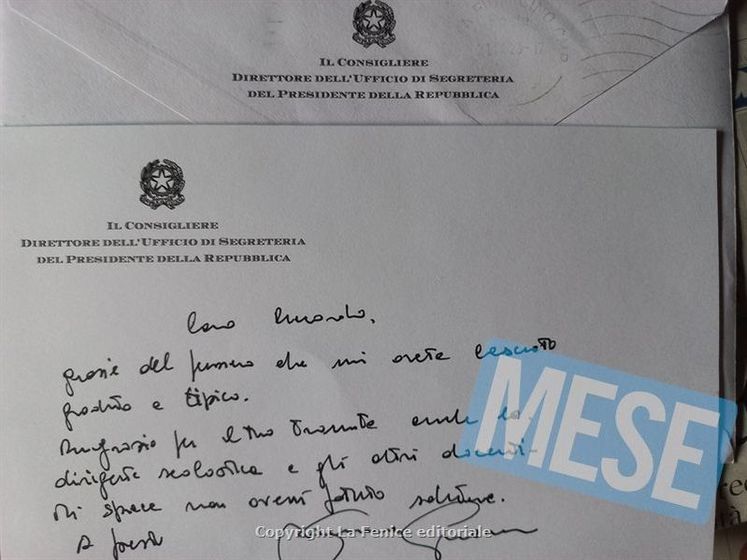 IL CONSIGLIERE
DIRETTORE DELL'UFFICIO DI SEGRETERIA
DEL PRESIDENTE DELLA REPUBBLICA
IL CONSIGLIERE
DIRETTORE DELL'UFFICIO DI SEGRETERIA
DEL PRESIDENTE DELLA REPUBBLICA
Caro
grazie del pensiero che mi avete lasciato
gradito e tipico.
Ringrazio per il tuo tramite anche la
dirigente scolastica e gli altri docenti.
Mi spiace non averti potuto salutare.
A presto
MESE
Copyright La Fenice editoriale